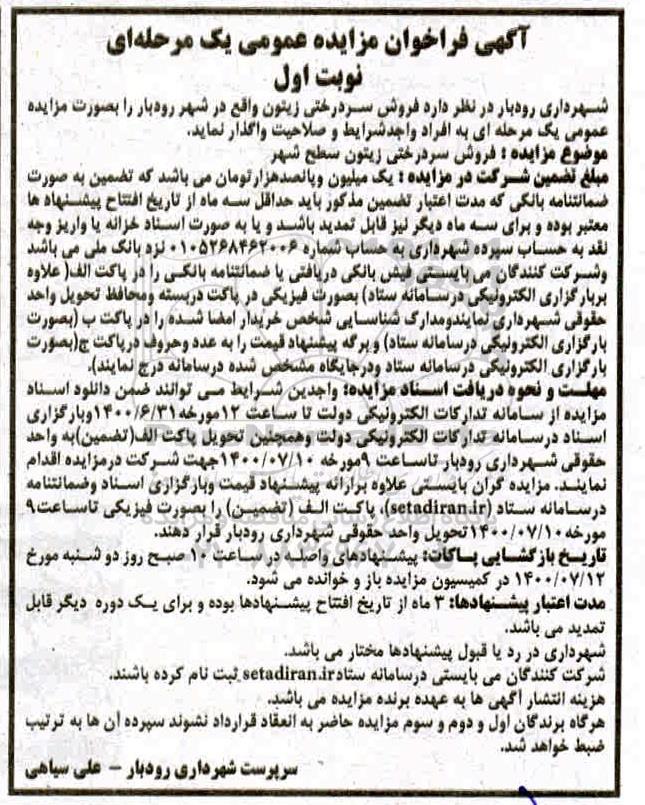 آگهی فراخوان مزایده عمومی یک مرحله‌ای
نوبت اول
شهرداری رودبار در نظر دارد فروش سردرختی زیتون واقع در شهر رودبار را بصورت مزایده
عمومی یک مرحله ای به افراد واجدشرایط و صلاحیت واگذار نماید.
موضوع مزایده : فروش سردرختی زیتون سطح شهر
مبلغ تضمین شرکت در مزایده : یک میلیون وپانصدهزارتومان می باشد که تضمین به صورت
ضمانتنامه بانکی که مدت اعتبار تضمین مذکور باید حداقل سه ماه از تاریخ افتتاح پیشنهاد ها
معتبر بوده و برای سه ماه دیگر نیز قابل تمدید باشد و یا به صورت اسناد خزانه یا واریز وجه
نقد به حساب سپرده شهرداری به حساب شماره ۰۱۰۵۲۶۸۴۶۲۰۰۶ نزد بانک ملی می باشد
وشرکت کنندگان می بایستی فیش بانکی دریافتی یا ضمانتنامه بانکی را در پاکت الف( علاوه
بربارگزاری الکترونیکی درسامانه ستاد) بصورت فیزیکی در پاکت دربسته ومحافظ تحویل واحد
حقوقی شهرداری نمایندومدارک شناسایی شخص خریدار امضا شده را در پاکت ب (بصورت
بارگزاری الکترونیکی درسامانه ستاد) و برگه پیشنهاد قیمت را به عدد وحروف درپاکت ج(بصورت
بارگزاری الکترونیکی درسامانه ستاد ودرجایگاه مشخص شده درسامانه درج نمایند).
مهلت و نحوه دریافت اسناد مزایده: واجدین شرایط می توانند ضمن دانلود اسناد
مزایده از سامانه تدارکات الکترونیکی دولت تا ساعت ۱۲مورخه ۱۴۰۰/۶/۳۱وبارگزاری
اسناد درسامانه تدارکات الکترونیکی دولت وهمچنین تحویل پاکت الف(تضمین)به واحد
حقوقی شهرداری رودبار تاساعت ۹مورخه ۱۴۰۰/۰۷/۱۰جهت شرکت درمزایده اقدام
نمایند. مزایده گران بایستی علاوه برارائه پیشنهاد قیمت وبارگزاری اسناد وضمانتنامه
درسامانه ستاد (setadiran.ir)، پاکت الف (تضمین) را بصورت فیزیکی تاساعت۹
مورخه۱۴۰۰/۰۷/۱۰تحویل واحد حقوقی شهرداری رودبار قرار دهند.
تاریخ بازگشایی پاکات: پیشنهادهای واصله در ساعت ۱۰ صبح روز دو شنبه مورخ
۱۴۰۰/۰۷/۱۲ در کمیسیون مزایده باز و خوانده می شود.
مدت اعتبار پیشنهادها: ۳ ماه از تاریخ افتتاح پیشنهادها بوده و برای یک دوره دیگر قابل
تمدید می باشد.
شهرداری در رد یا قبول پیشنهادها مختار می باشد.
شرکت کنندگان می بایستی درسامانه ستادsetadiran.ir ثبت نام کرده باشند.
هزینه انتشار آگهی ها به عهده برنده مزایده می باشد.
هرگاه برندگان اول و دوم و سوم مزایده حاضر به انعقاد قرارداد نشوند سپرده آن ها به ترتیب
ضبط خواهد شد.
سرپرست شهرداری رودبار – علی سیاهی